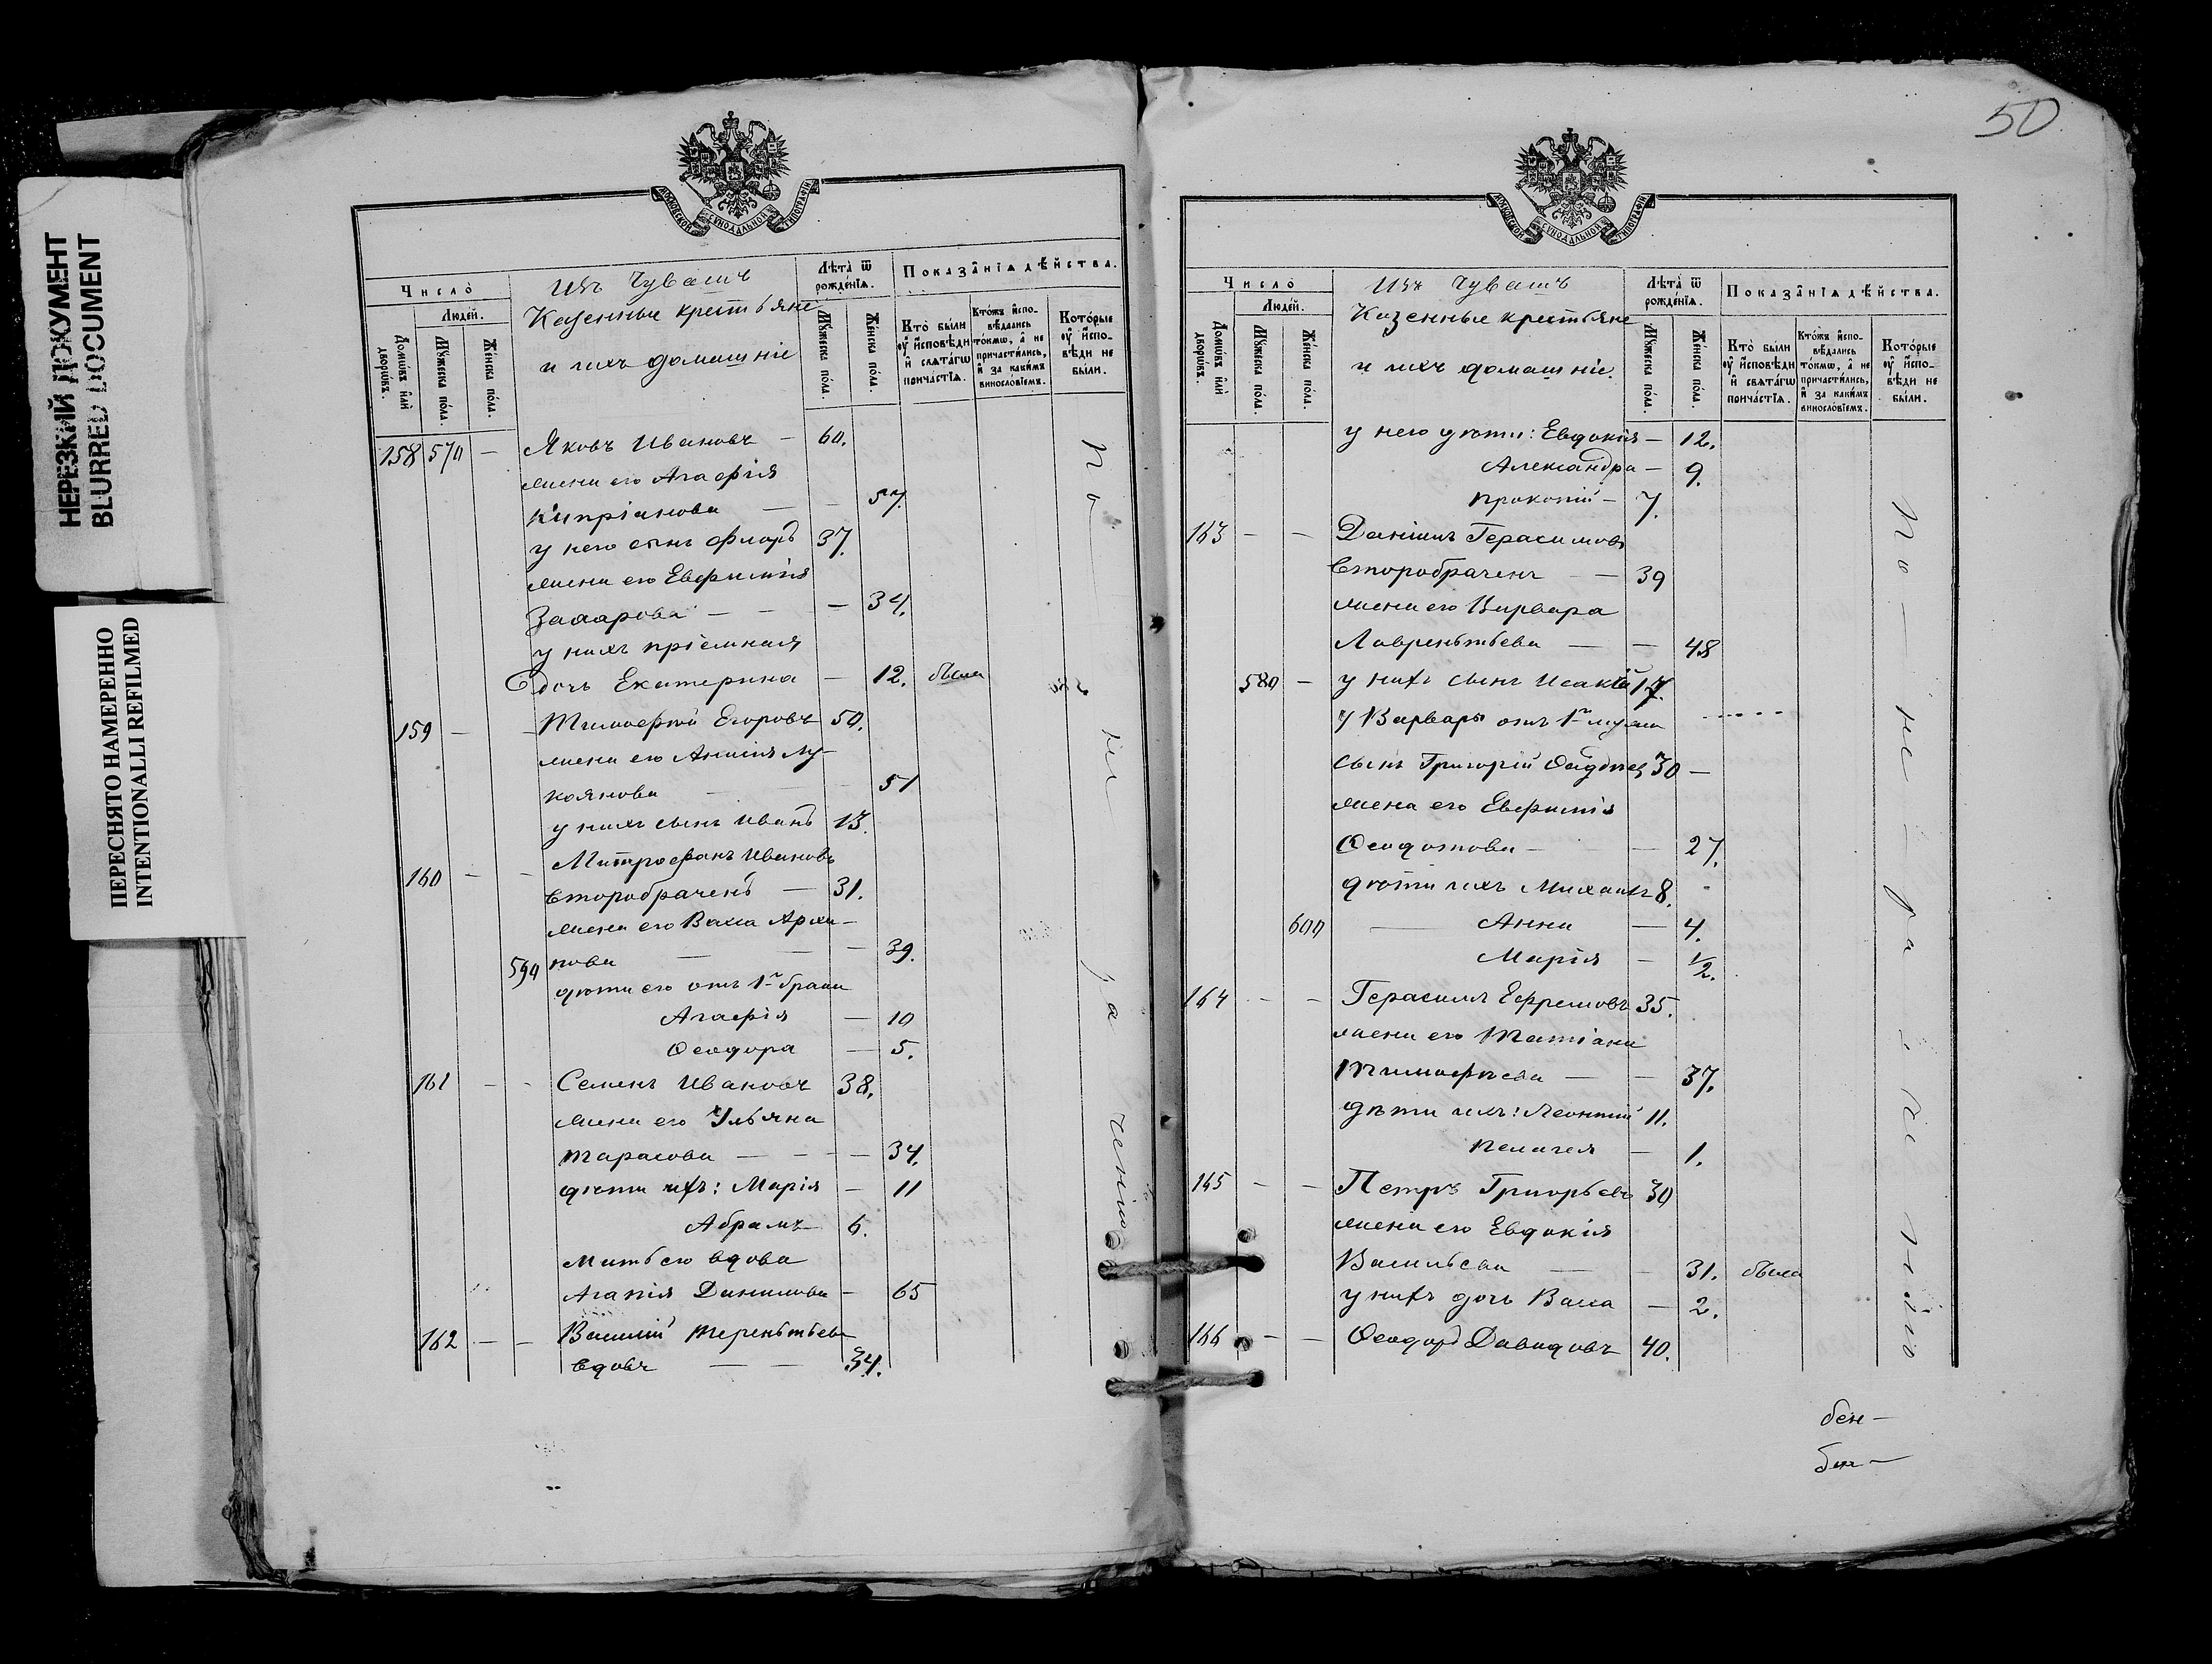 НЕРЕЗКИЙ ДОКУМЕНТ
BLURRED DOCUMENT
ПЕРЕСНЯТО НАМЕРЕННО
INTENTIONALLI REFILMED
МОСКОВСКОЙ СѴНОДАЛЬНОЙ ТИПОГРАФІИ
Число̀
Людей.
Домѡвъ и҆лѝ дворѡвъ.
Мꙋжеска пола.
Женска пола.
Изъ Чувашъ
Казенные крестьяне
и ихъ домашніе
Лѣта̀ ѿ рожденїѧ.
Мꙋжеска пола.
Женска пола.
Показанїѧ дѣйства.
Кто̀ были оу҆ и҆сповѣди и҆ свѧтагѡ причастїѧ.
Ктожъ и҆сповѣдались токмѡ, а҆ не причастились, и҆ за какимъ винословїемъ.
Которые оу҆ и҆сповѣди не были.
158 570 — Яковъ Ивановъ — 60.
жена его Агафія
Кипріанова — — 57.
у него сынъ Флоръ 37.
жена его Евфимія
Захарова — — — 34.
у нихъ пріемная
дочь Екатерина — 12. была
159 — — Тимофей Егоровъ 50.
жена его Анисія Лу-
коянова — — 51
у нихъ сынъ Иванъ 13.
160 — — Митрофанъ Ивановъ
второбраченъ — 31.
жена его Васса Архи-
590 пова — — — 39.
дѣти его отъ 1го брака
Агафія — 10
Ѳеодора — 5.
161 — — Семенъ Ивановъ 38.
жена его Ульяна
Тарасова — — — 34.
дѣти ихъ: Марія — 11
Абрамъ 6.
Мать его вдова
Агапія Данилова — 65
162 — — Василій Терентьевъ
вдовъ — — 34.
По не ра че нію
50
МОСКОВСКОЙ СѴНОДАЛЬНОЙ ТИПОГРАФІИ
Число̀
Людей.
Домѡвъ и҆лѝ дворѡвъ.
Мꙋжеска пола.
Женска пола.
Изъ Чувашъ
Казенные крестьяне
и ихъ домашніе.
Лѣта̀ ѿ рожденїѧ.
Мꙋжеска пола.
Женска пола.
Показанїѧ дѣйства.
Кто̀ были оу҆ и҆сповѣди и҆ свѧтагѡ причастїѧ.
Ктожъ и҆сповѣдались токмѡ, а҆ не причастились, и҆ за какимъ винословїемъ.
Которые оу҆ и҆сповѣди не были.
у него дѣти: Евдокія — 12.
Александра — 9.
Прокопій — 7.
163 — — Даніилъ Герасимовъ
второбраченъ — 39
жена его Варвара
Лаврентьева — — 48
580 — у нихъ сынъ Исакій 17.
у Варвары отъ 1го мужа
сынъ Григорій 30 —
жена его Евфимія
Ѳеодотова — — 27.
дѣти ихъ Михаилъ 8.
600 — Анна — 4.
Марія — 1/2.
164 — — Герасимъ Ефремовъ 35.
жена его Татіана
Тимофѣева — — 37.
дѣти ихъ: Леонтій 11.
Пелагея — 1.
165 — — Петръ Григорьевъ 30
жена его Евдокія
Васильева — — 31. была
у нихъ дочь Васса — 2.
166 — — Ѳеодоръ Давидовъ 40.
По — не — ра — че — нію